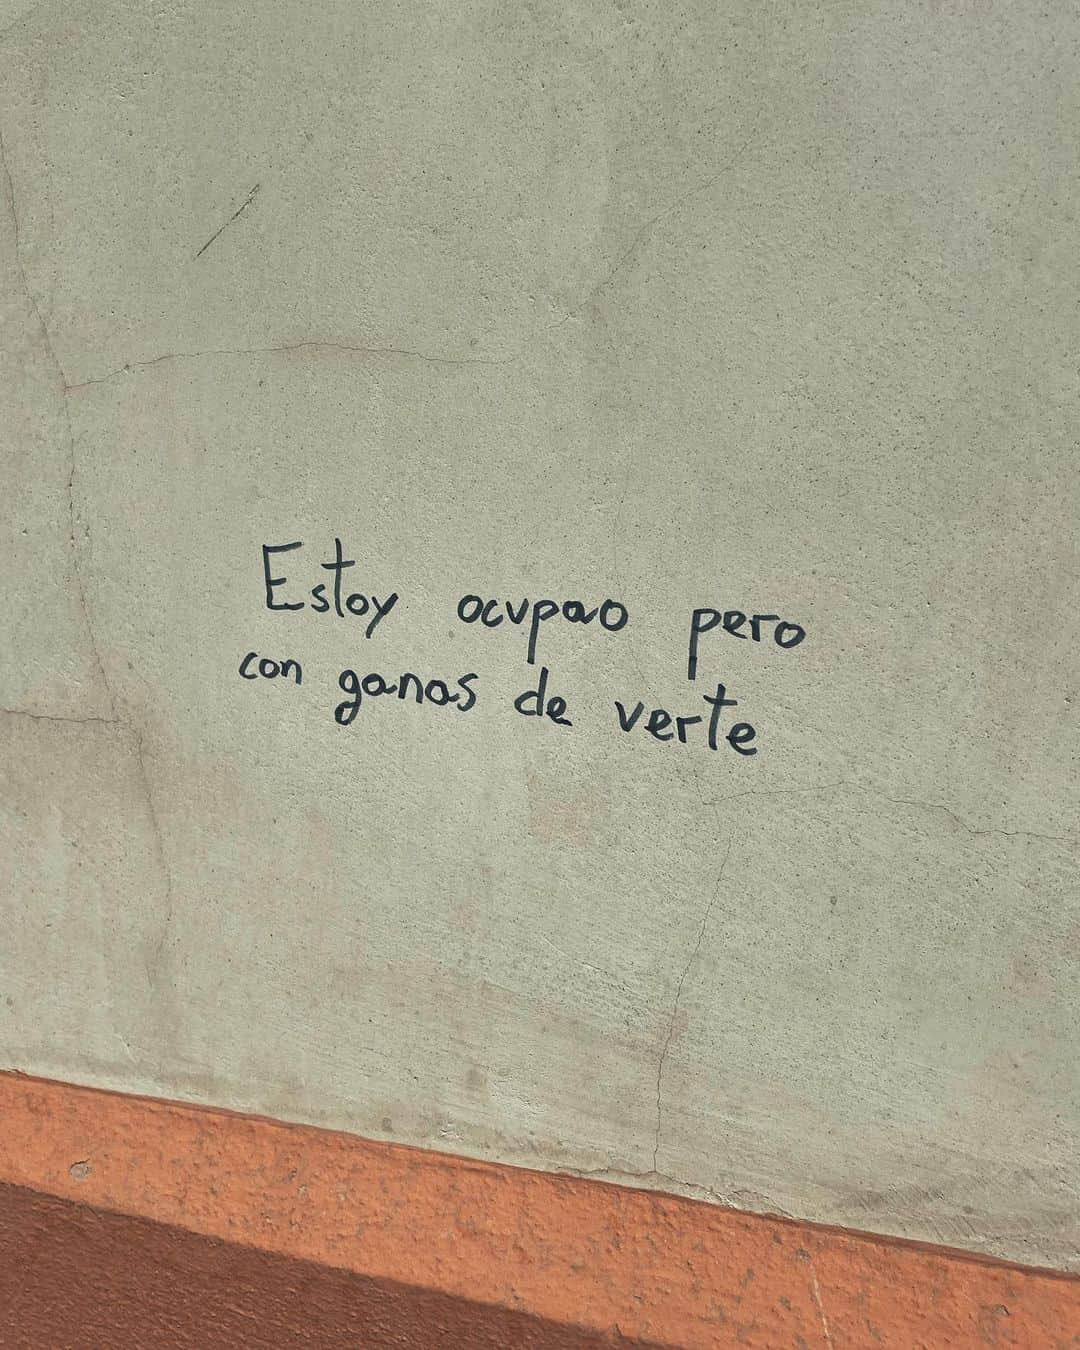 Estoy ocupao pero
con ganas de verte